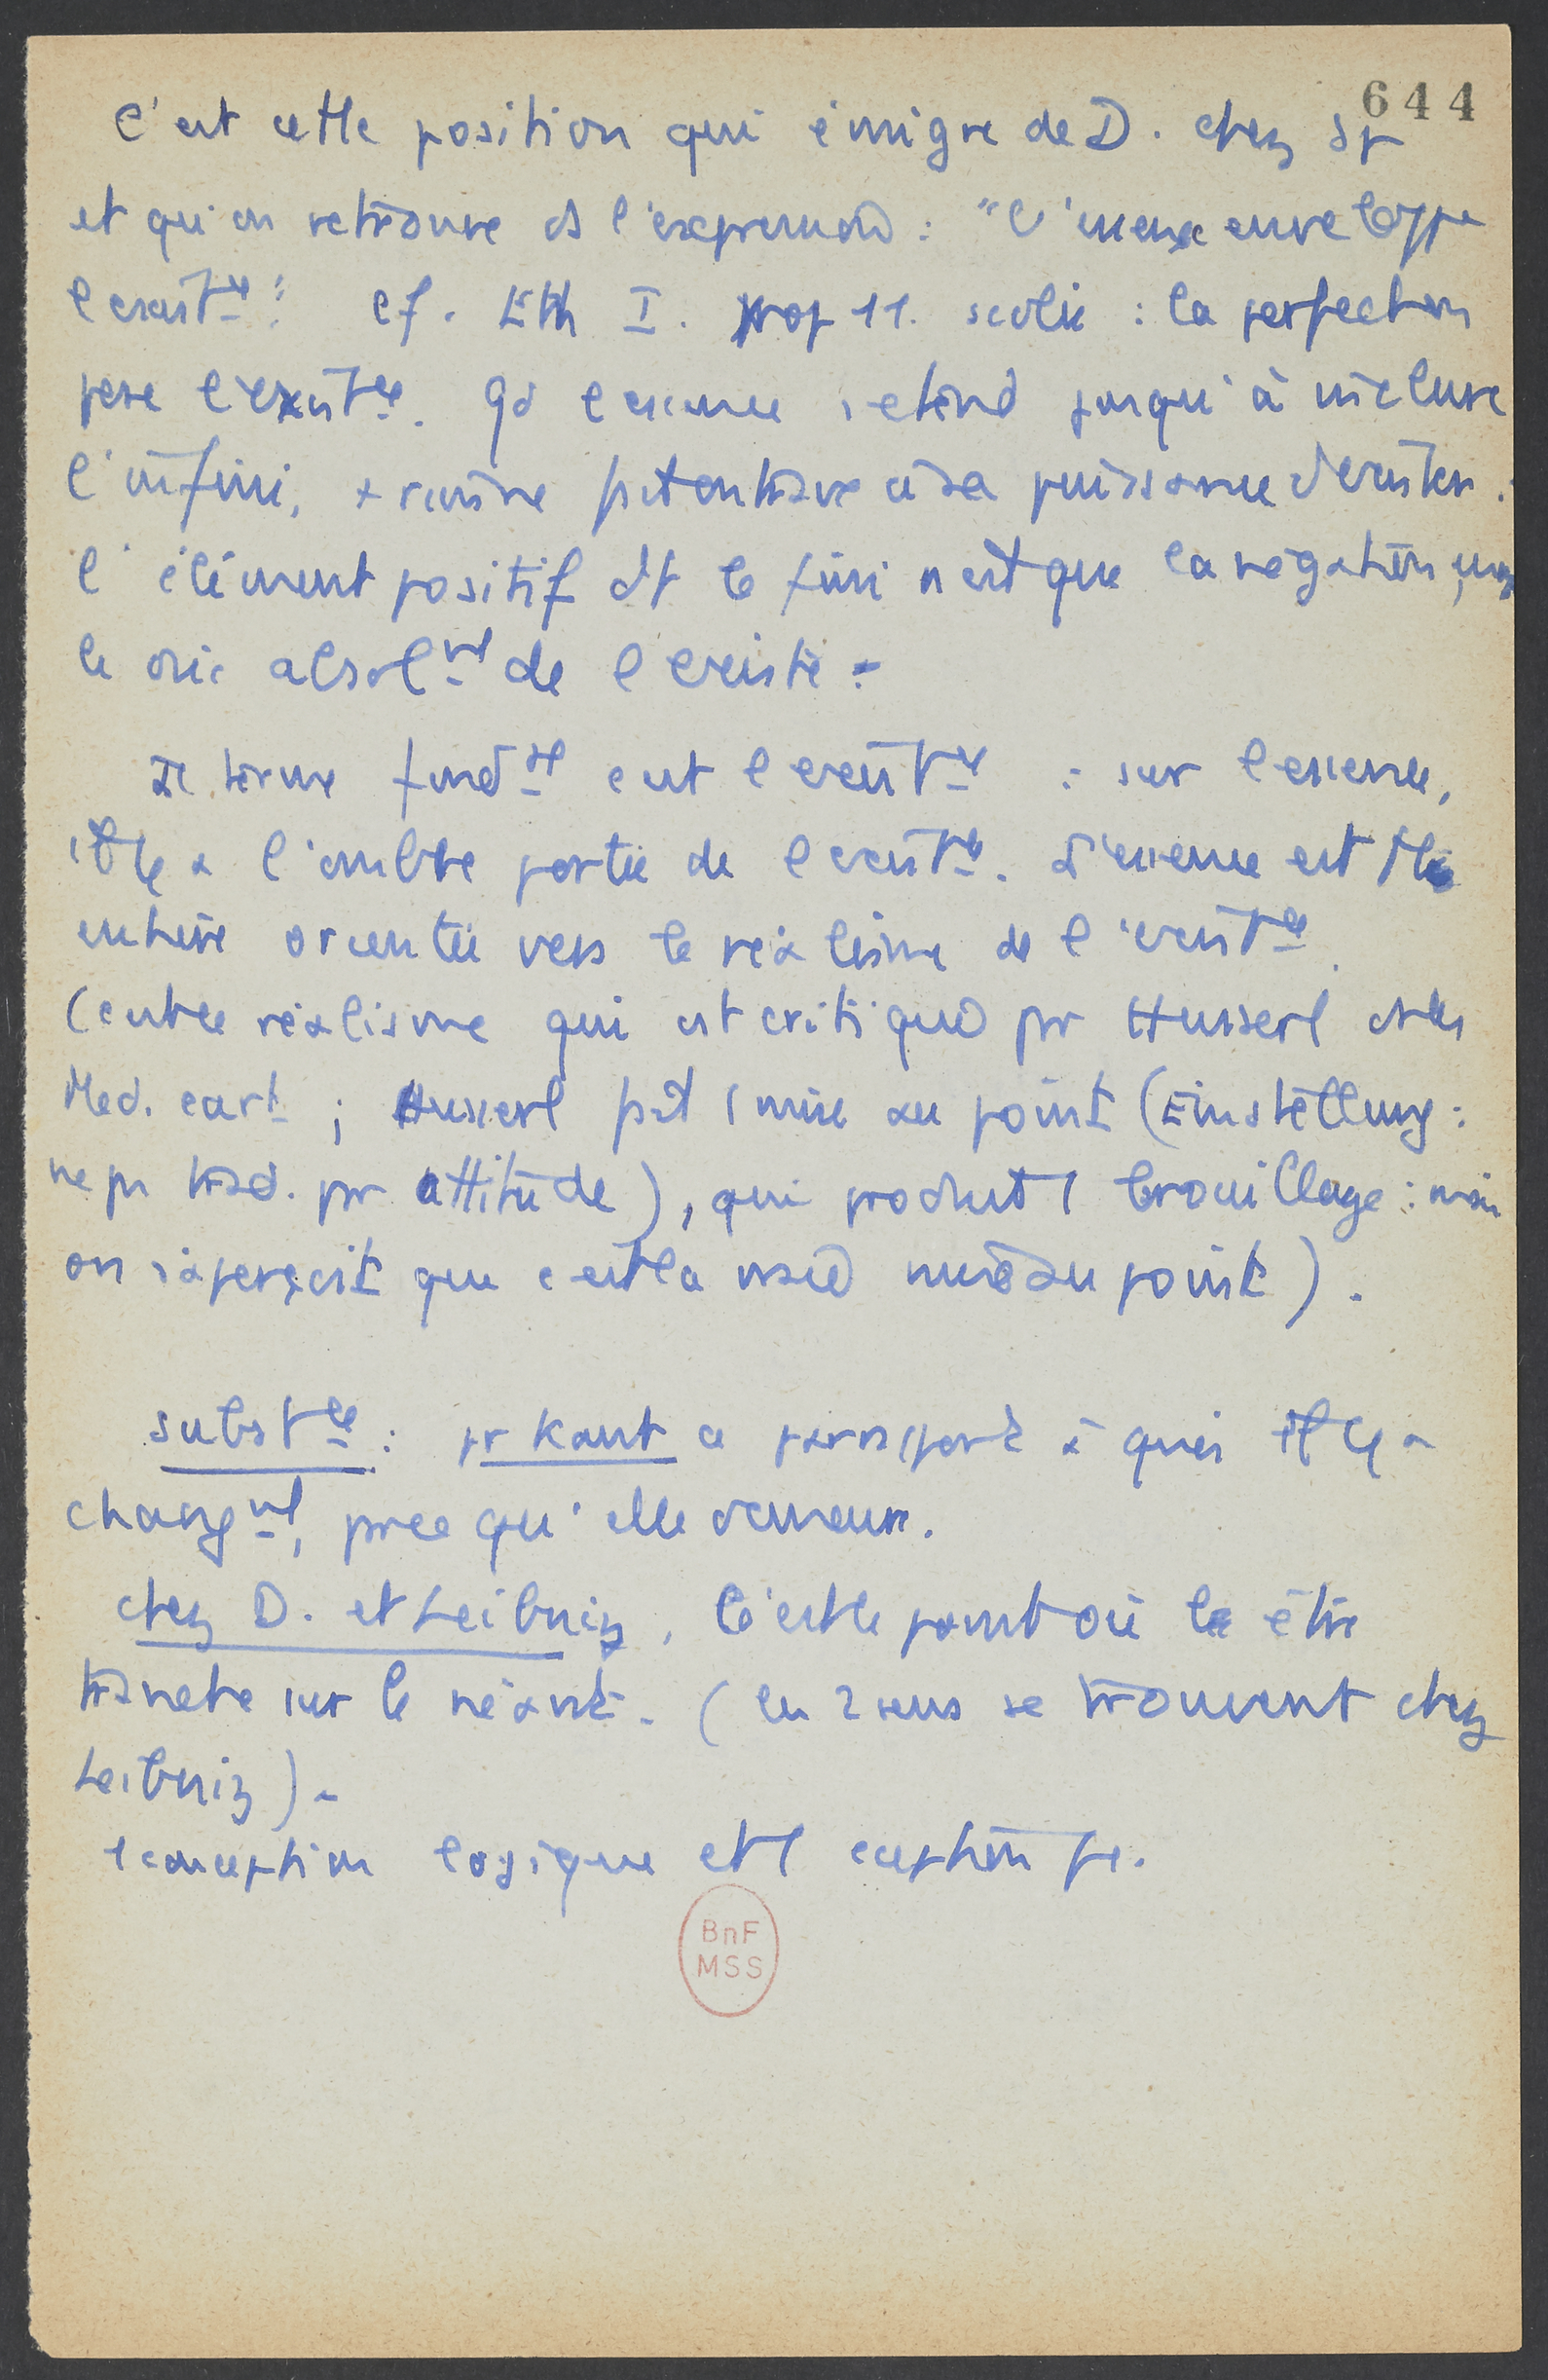 644
C'est cette position qui émigre de D. chez Sp
et qu'on retrouve ds l'expression : "l'essence enveloppe
l'exist^ce". Cf. Eth I. prop 11. scolie : la perfection
pose l'exist^ce. Qd l'essence s'étend jusqu'à inclure
l'infini, puissance d'exister.
l'élément positif dt le fini n'est que la négation,
le oui absol^mt de l'existe.
Le terme fond^al c'est l'exist^ce : sur l'essence,
il y a l'ombre portée de l'exist^ce. L'essence est
entière orientée vers le réalisme de l'exist^ce.
(c'est ce réalisme qui est critiqué pr Husserl ds les
Med. cart ; Husserl fait 1 mise au point (Einstellung :
ne pas trad. pr attitude), qui produit 1 brouillage : mais
on s'aperçoit que c'est la vraie mise au point).
Subst^ce : pr Kant a par rapport à quoi il y a
chang^mt, parce qu'elle demeure.
Chez D. et Leibniz, c'est le point où le être
tranche sur le néant. (les 2 sens se trouvent chez
Leibniz).
1 conception logique et 1 conception
BnF
MSS